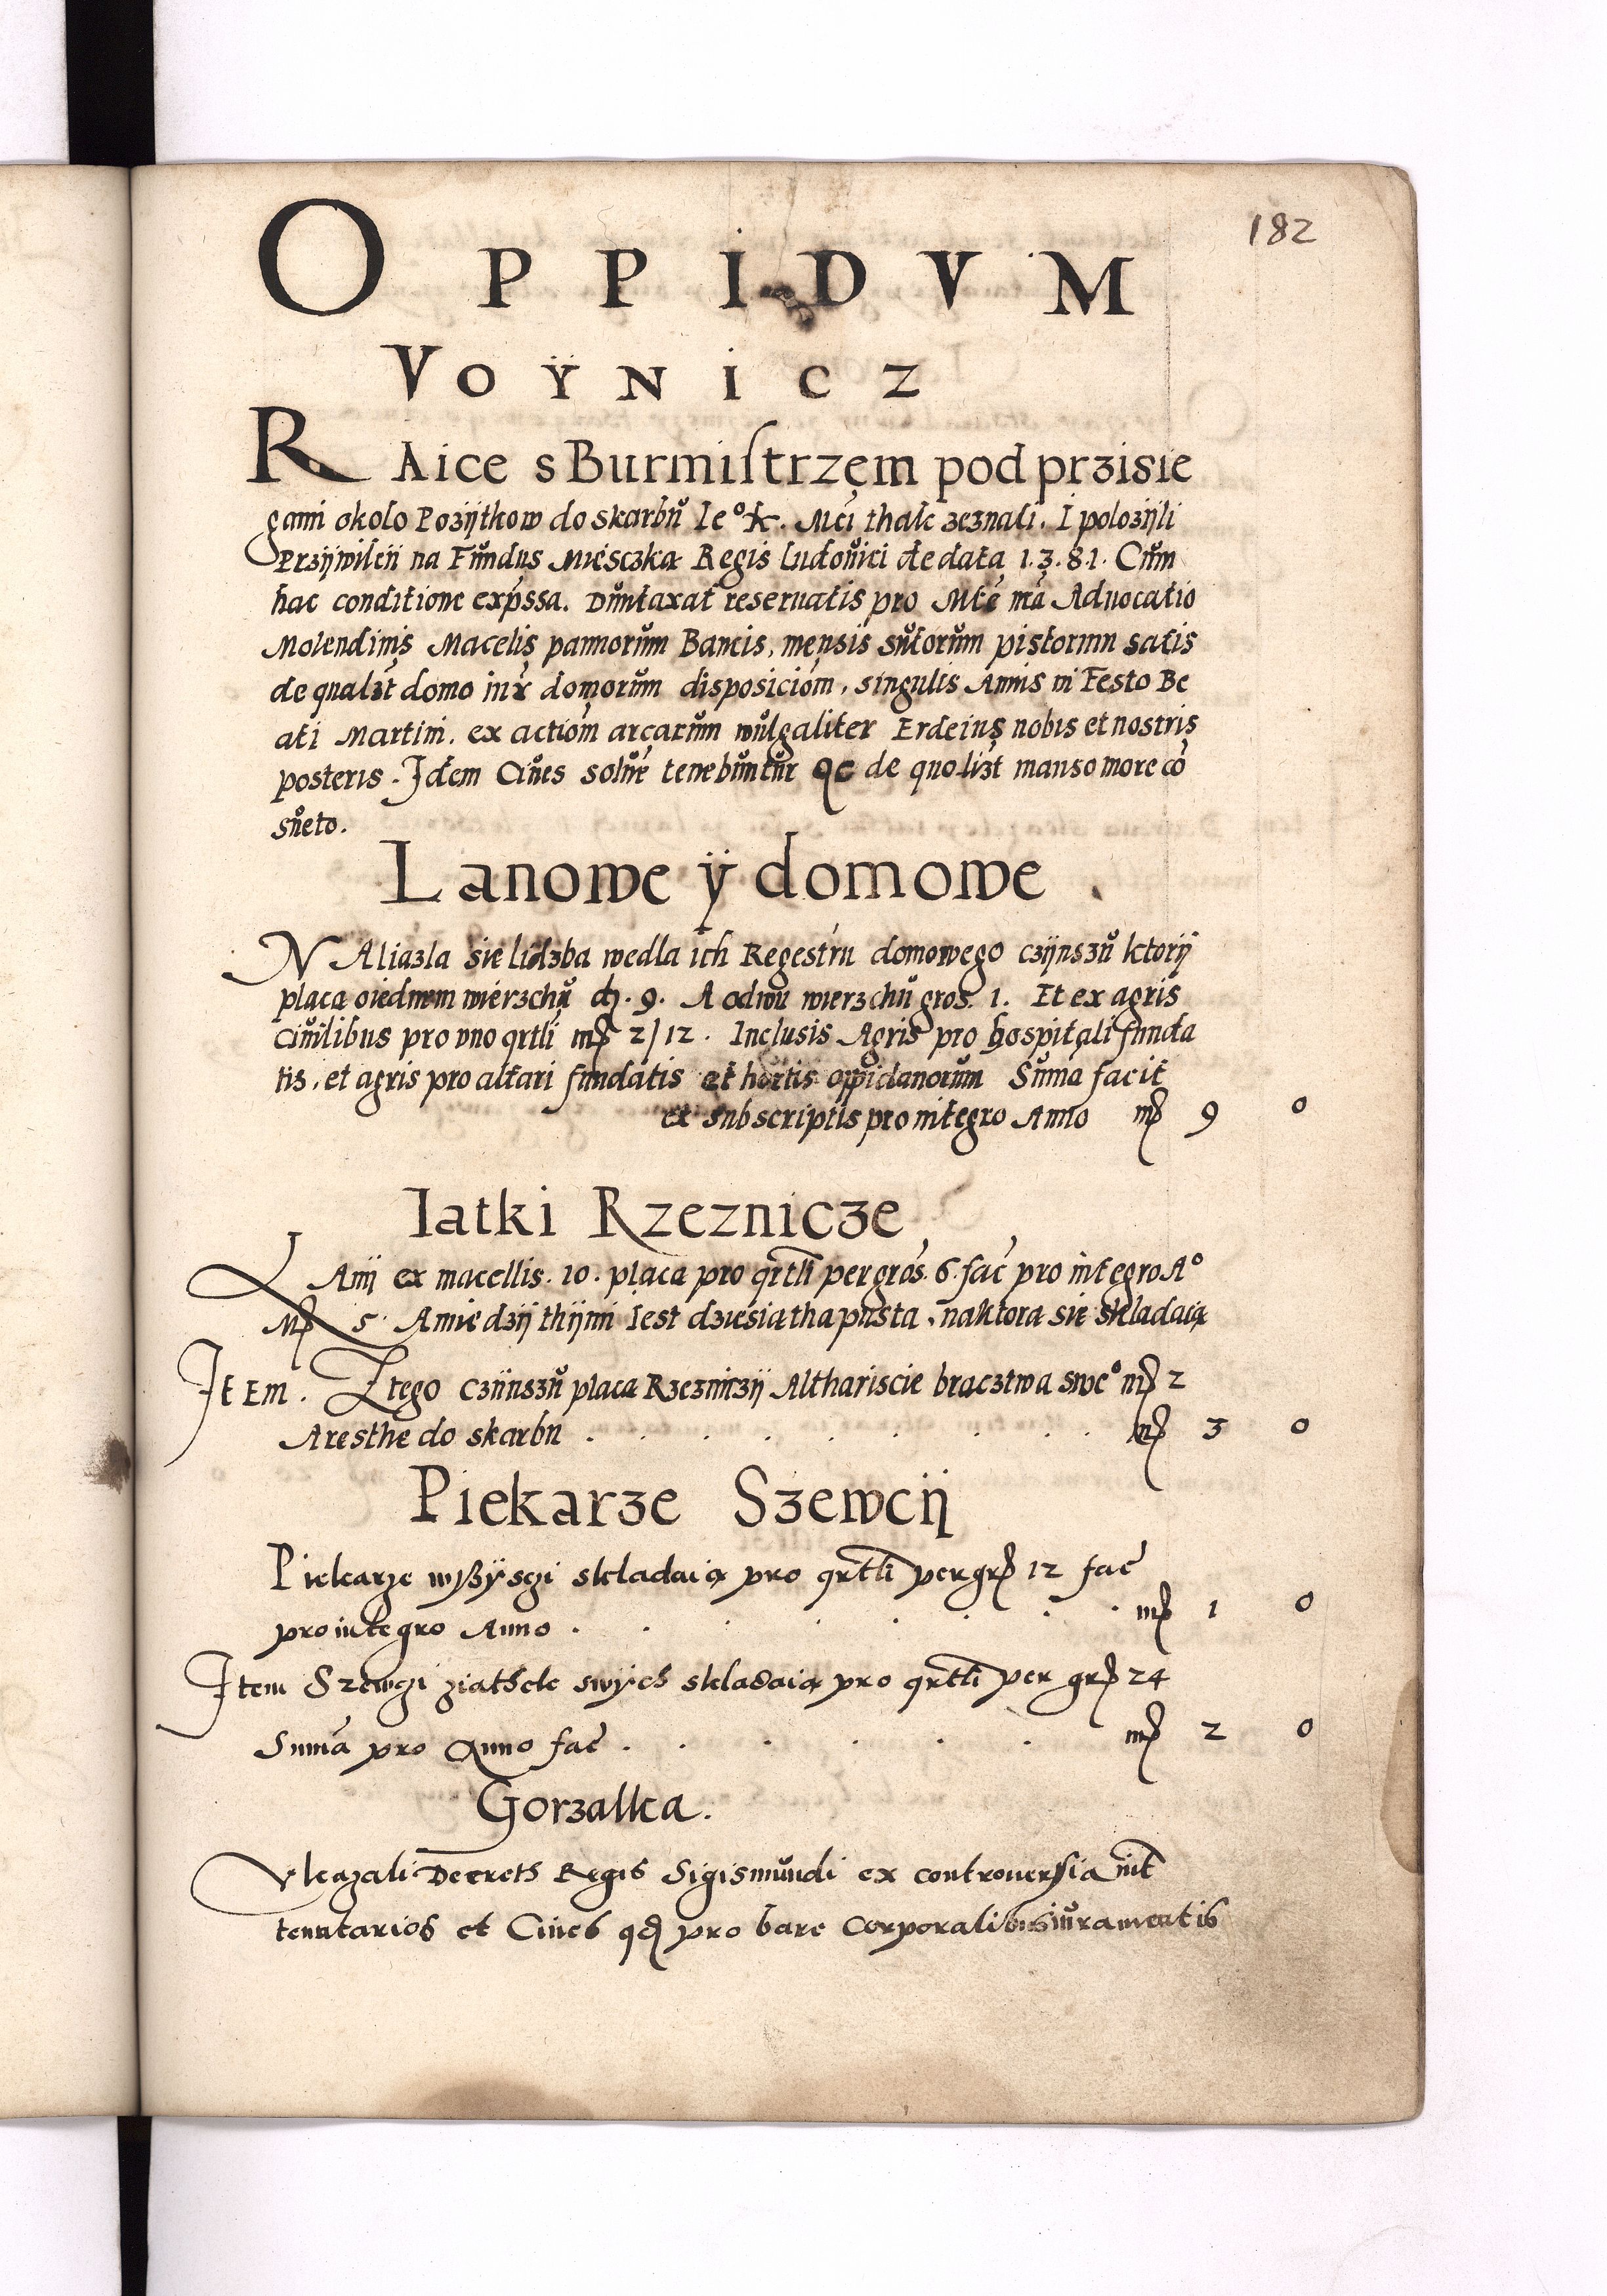 182
OPPIDVM
VOŸNICZ
RAice s Burmistrzem pod przisie
gami okolo Pozÿtkow do skarbu Ie° K. Mci thak zeznali. I polozÿli
Przÿwileÿ na Fundus Miesczka Regis Ludouici de data 1.3.8.1. Cum
hac conditione expssa. Duntaxat reseruatis pro Mte ma Aduocatio
Molendinis Macelis pannorum Bancis, mensis sutorum pistorum satis
de qualzt domo iux domorum disposiciom, singulis Annis in Festo Be
ati Martini. ex actiom arcarum wulgaliter Erdeins nobis et nostris
posteris. Idem Ciues solue tenebuntur qc de quolizt manso more co
sueto.
Lanowe ÿ domowe
NAliazla sie lidzba wedla ich Regestru domowego czÿnszu ktorÿ
placa oiednem wierzchu ₰. 9. A odwu wierzchu gros. 1. Et ex agris
Ciuilibus pro vno qrtli mp 2/12. Inclusis Agris pro hospitali funda
tis, et agris pro altari fundatis et hortis oppidanorum Suma facit
ex subscriptis pro integro Anno mp 9 0
Iatki Rzeznicze
Anÿ ex macellis. 10. placa pro qrtli per gros. 6. fac pro integro A°
Mp 5. Amiedzÿ thÿmi Iest dziesiatha pusta, naktora sie skladaia
Item. Ztego czÿnszu placa Rzezniczÿ Althariscie bracztwa swe° mp 2
Aresthe do skarbu . . . . . . . . mp 3 0
Piekarze Szewcÿ
Piekarze wßÿsczi skladaia pro qrtli per grp 12 fac
pro integro Anno . . . . . . . mp 1 0
Item Szewczi ziathek swÿch skladaia pro qrtli per grp 24
Suma pro Anno fac . . . . . . mp 2 0
Gorzalka.
Vkazali Decreth Regis Sigismundi ex controuersia int
tenutarios et Ciues qd pro bare corporalibus iuramentis